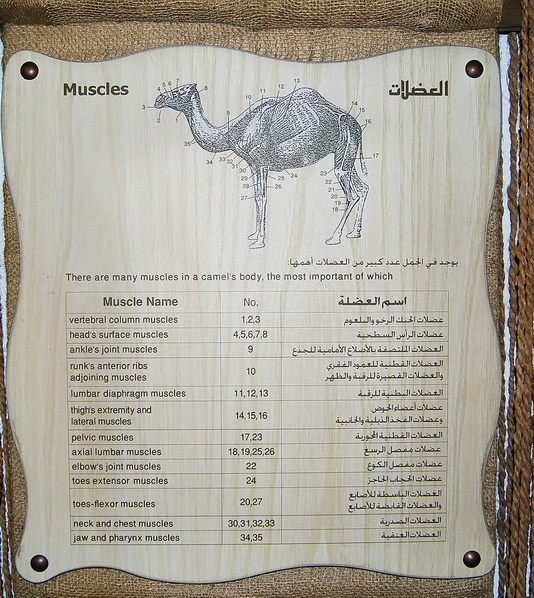 Muscles
العضلات
يوجد في الجمل عدد كبير من العضلات أهمها:
There are many muscles in a camel's body, the most important of which
Muscle Name No. اسم العضلة
vertebral column muscles 1,2,3 عضلات الحنك الرخو والبلعوم
head's surface muscles 4,5,6,7,8 عضلات الرأس السطحية
ankle's joint muscles 9 العضلات الملتصقة بالأضلاع الأمامية للجدع
runk's anterior ribs
adjoining muscles
10
العضلات القطنية للعمود الفقري
والعضلات القصيرة للرقبة والظهر
lumbar diaphragm muscles 11,12,13 العضلات البطنية للرقبة
thigh's extremity and
lateral muscles
14,15,16
عضلات أعضاء الحوض
وعضلات الفخذ الذيلية والجانبية
pelvic muscles 17,23 العضلات القطنية المحورية
axial lumbar muscles 18,19,25,26 عضلات مفصل الرسغ
elbow's joint muscles 22 عضلات مفصل الكوع
toes extensor muscles 24 عضلات الحجاب الحاجز
toes-flexor muscles 20,27
العضلات الباسطة للأصابع
والعضلات القابضة للأصابع
neck and chest muscles 30,31,32,33 العضلات الصدرية
jaw and pharynx muscles 34,35 العضلات العنقية